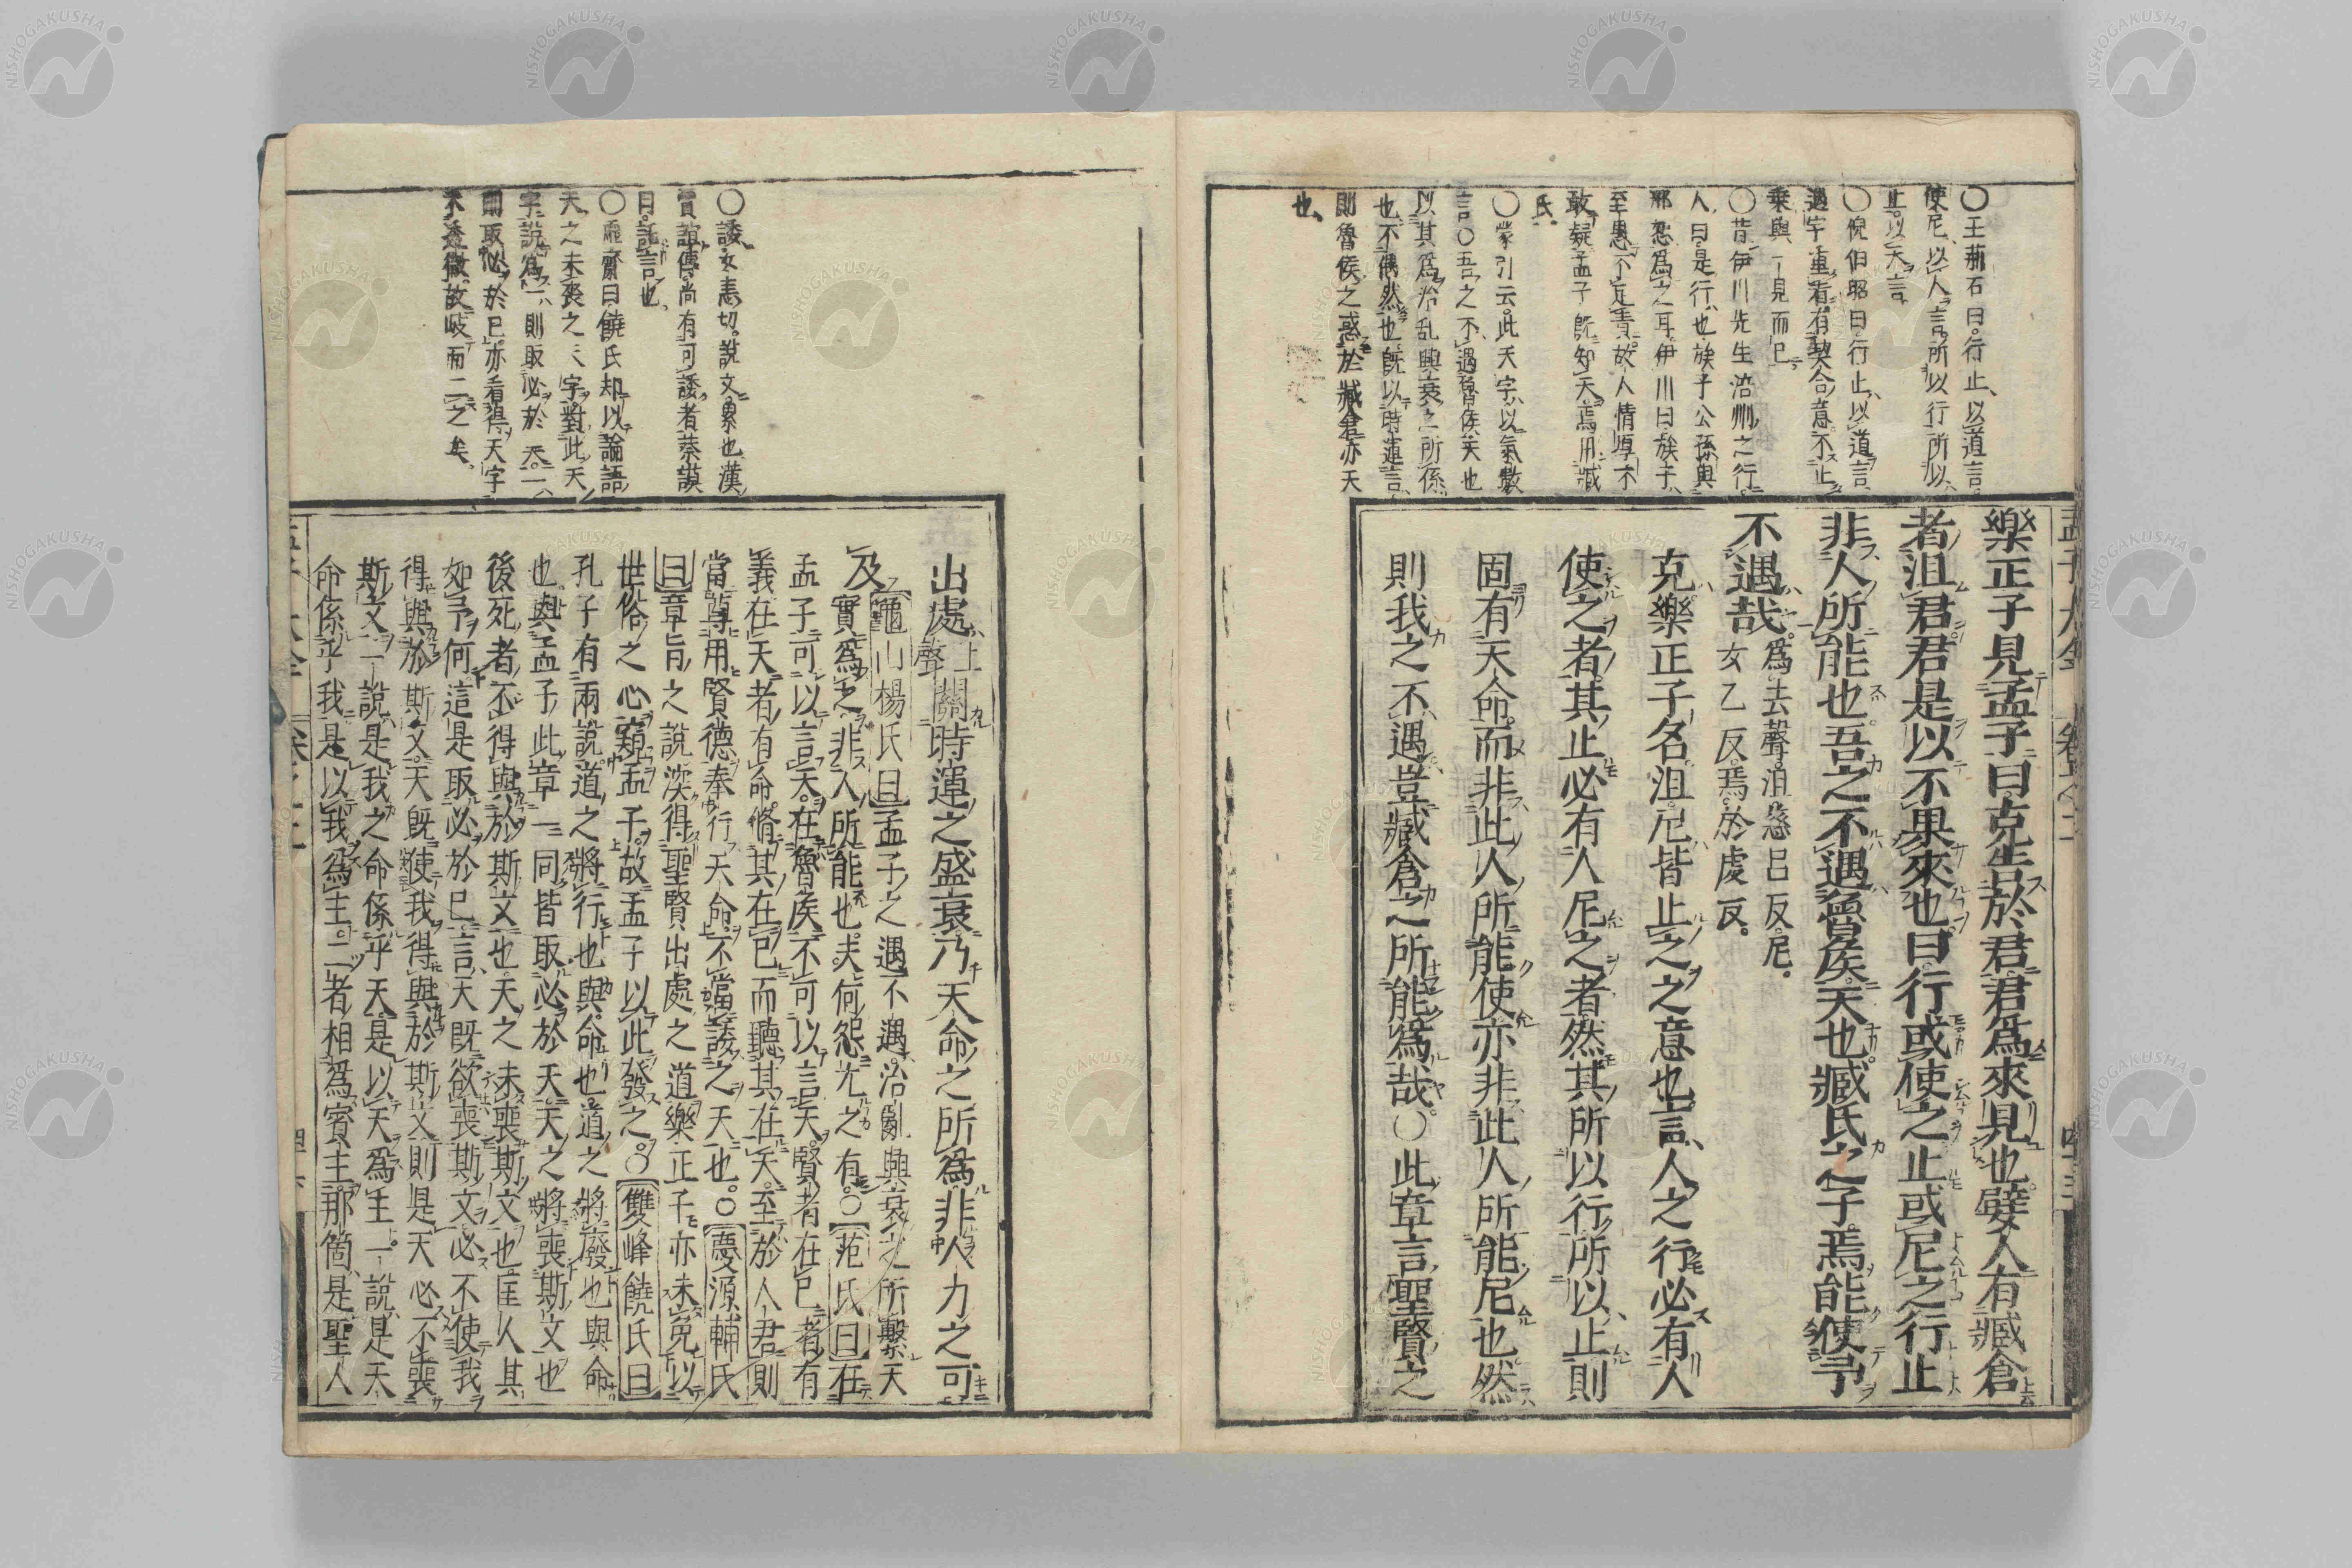 ○王荊石曰。行止、以道言。
使尼、以人言。所以行所以
止。以天言。
○倪伯昭曰。行止、以道言
遇字重看。有契合意。不止
乗輿一見而已。
○昔伊川先生涪州之行。
人曰。是行也。族子公孫與
邢恕為之耳。伊川曰。族子、
至愚不足責。故人情厚不
敢疑。孟子既知天。焉用臧
氏。
○蒙引云。此天字。以氣數
言。○吾之不遇魯侯天也
以其為治乱興衰之所係
也。不偶然也。既以時運言
則魯侯之惑於臧倉亦天
也。
樂正子見孟子曰。克告於君。君爲來見也。嬖人有臧倉
者沮君。君是以不果來也。曰。行或使之。止或尼之。行止
非人所能也。吾之不遇魯侯。天也。臧氏之子。焉能使予
不遇哉。爲去聲。沮慈呂反。尼。
女乙反。焉。於虔反。
克。樂正子名。沮。尼。皆止之之意也。言、人之行必有人
使之者。其止必有人尼之者。然其所以行所以止。則
固有天命。而非此人所能使。亦非此人所能尼也。然
則我之不遇。豈臧倉之所能爲哉。○此章言。聖賢之
孟子大全 卷之二
○諉。女恚切。說文。累也。漢
賈誼傳。尚有可諉者。蔡謨
曰。託言也。
○麗齋曰。饒氏却以論語
天之未喪之天字。對此天
字說為二、則取必於天。一、
則取必於已。亦看得天字
不透徹。故岐而二之矣。
出處上聲關時運之盛衰。乃天命之所爲。非人力之可
及。龜山楊氏曰孟子之遇不遇。治亂興衰之所繫。天
實爲之。非人所能也。夫何怨尤之有。○范氏曰在
孟子可以言天。在魯侯不可以言天。賢者在已者有
義。在天者有命。脩其在已而聽其在天。至於人君則
當尊用賢德奉行天命。不當諉之天也。○慶源輔氏
曰章旨之說深得聖賢出處之道。樂正子亦未免以
世俗之心窺孟子。故孟子以此發之。○雙峰饒氏曰
孔子有兩說。道之將行也與。命也。道之將廢也與。命
也。與孟子此章一同。皆取必於天。天之將喪斯文也
後死者不得與於斯文也。天之未喪斯文也。匡人其
如予何。這是取必於已。言天既欲喪斯文。必不使我
得與於斯文。天既使我得與於斯文。則是天必不喪
斯文。一說是我之命係乎天。是以天爲主。一說是天
命係乎我。是以我爲主。二者相爲賓主。那箇是聖人